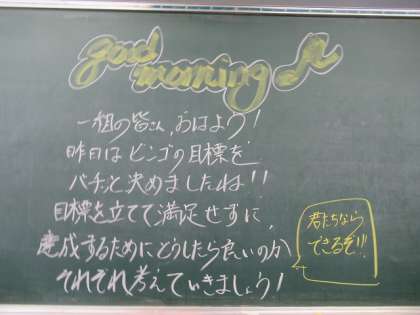 good
morning ♪
一組の皆さん、おはよう!
昨日はビンゴの目標を
バチッと決めましたね!!
目標を立てて満足せずに、
達成するためにどうしたら良いのか
それぞれ考えていきましょう!
君たちなら
できるぞ!!